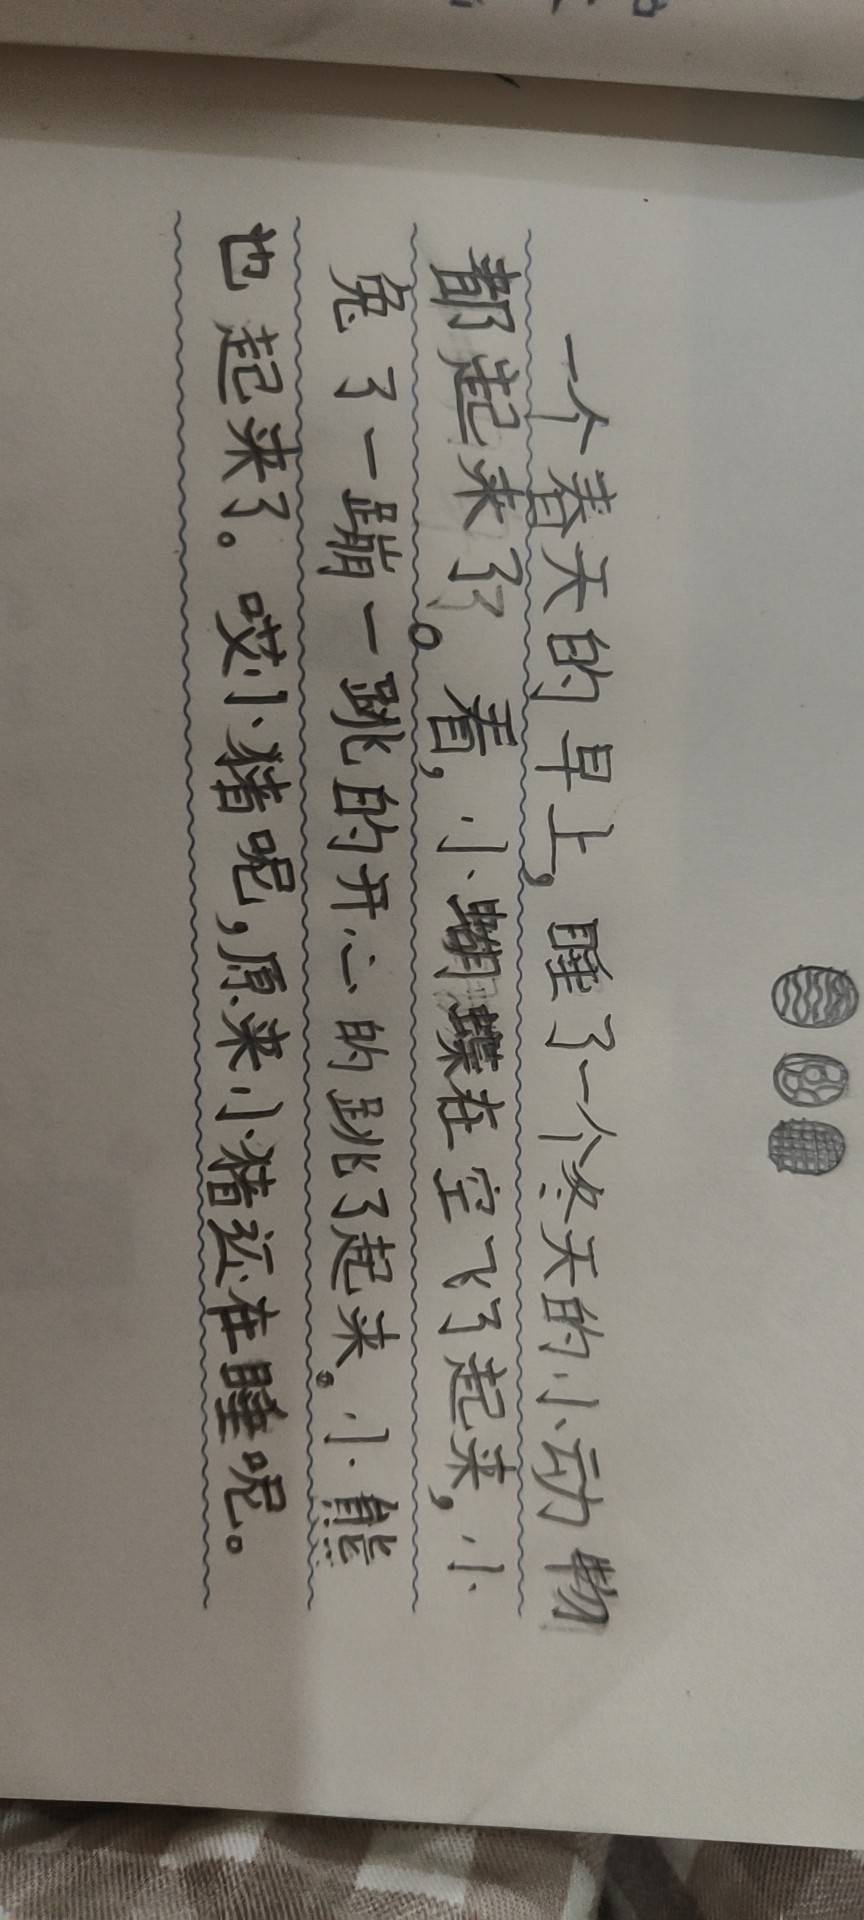 一个春天的早上，睡了一个冬天的小动物
都起来了。看，小蝴蝶在空飞了起来，小
兔了一蹦一跳的开心的跳了起来。小熊
也起来了。哎小猪呢，原来小猪还在睡呢。